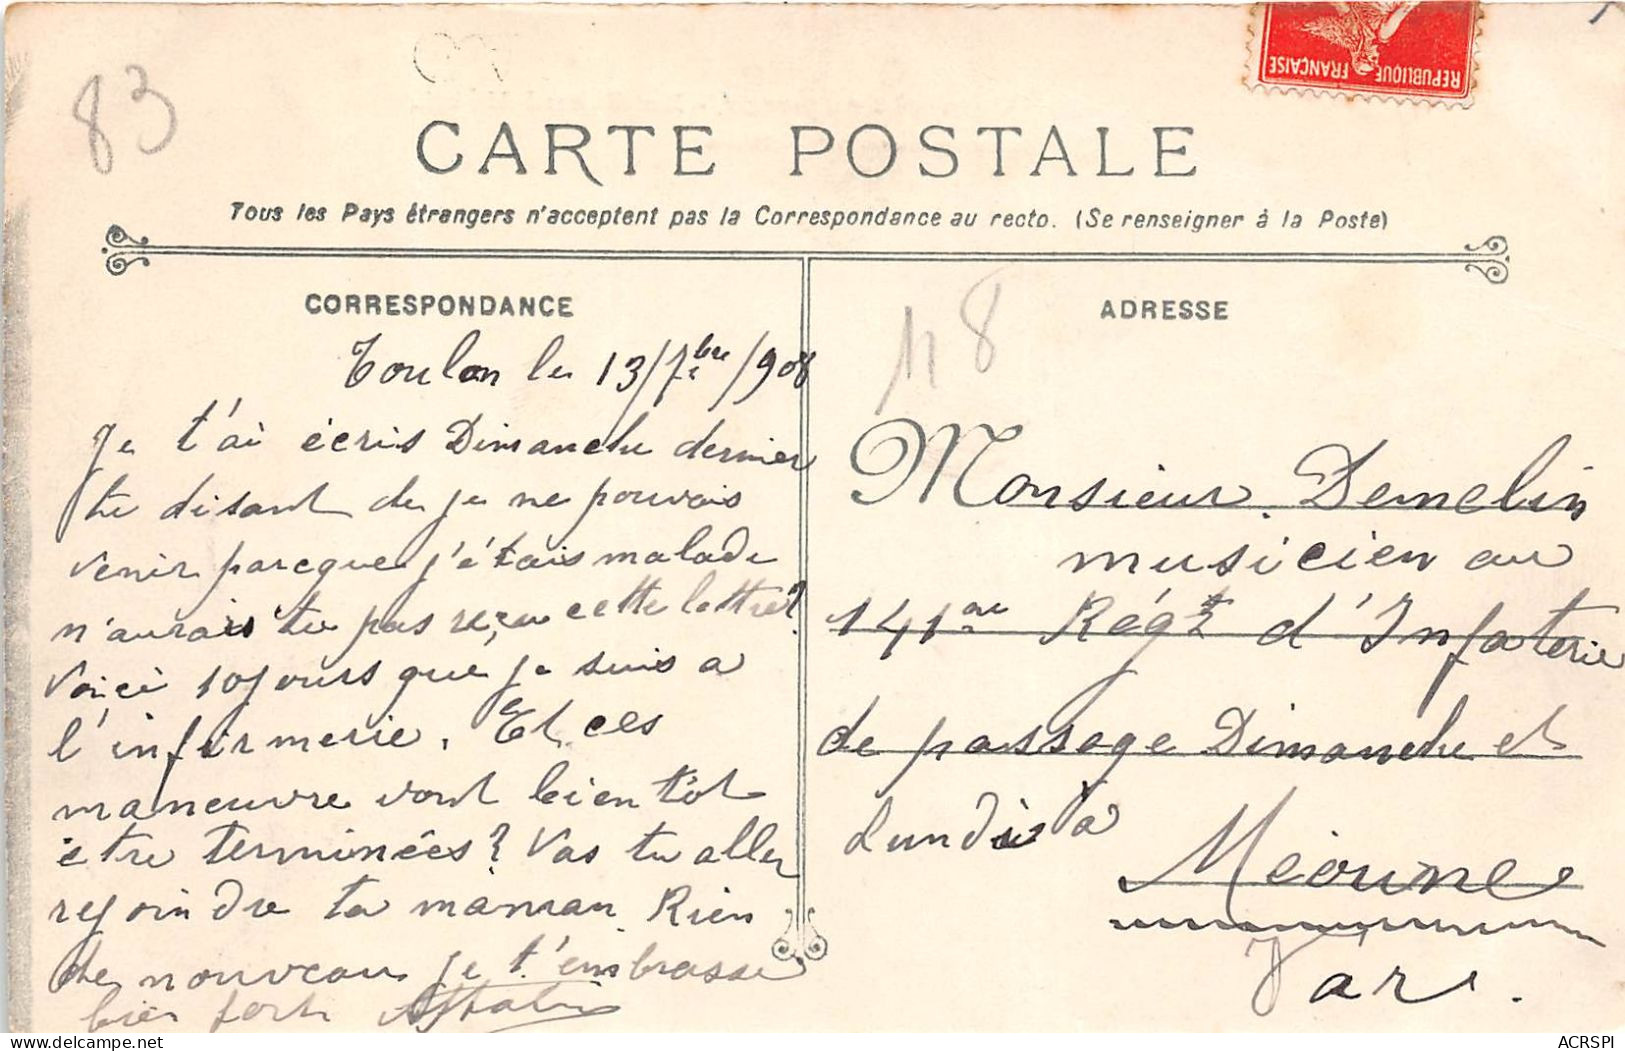 83
REPUBLIQUE FRANÇAISE
CARTE POSTALE
Tous les Pays étrangers n'acceptent pas la Correspondance au recto. (Se renseigner à la Poste)
CORRESPONDANCE
Toulon le 13/7bre/908
Je t'ai écris Dimanche dernier
te disant de je ne pouvais
venir parcque j'étais malade
n'aurais tu pas reçu cette lettre?
Voici 10 jours que je suis a
l'infirmerie. Et ces
maneuvre vont bientôt
être terminées? Vas tu aller
rejoindre ta maman. Rien
de nouveau je t'embrasse
bien fort
ADRESSE
118
Monsieur. Demelin
musicien au
141me Régt d'Infaterie
de passage Dimanche et
Lundi à
Méounes
Var.
ACRSPI